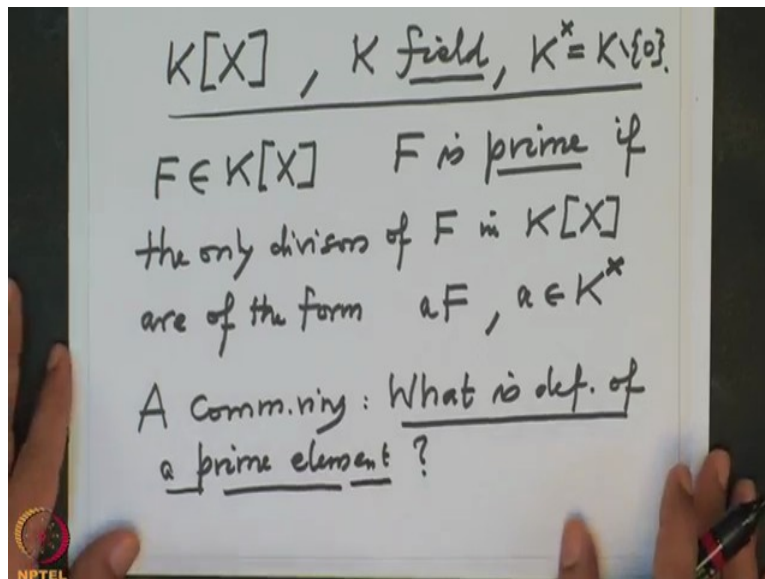 K[X] , K field, K^× = K\{0}.
F ∈ K[X] F is prime if
the only divisors of F in K[X]
are of the form aF , a ∈ K^×
A comm. ring : What is def. of
a prime element ?
NPTEL